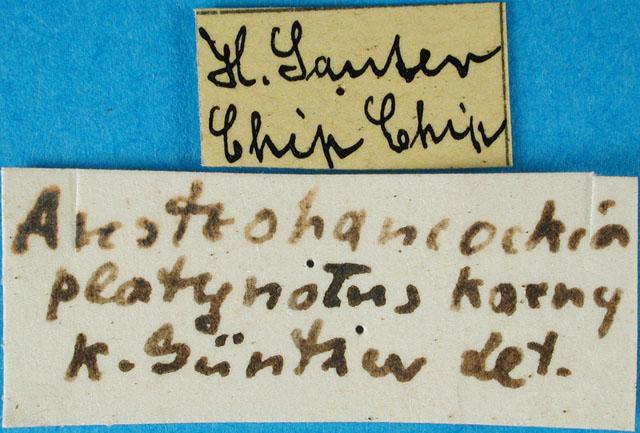 H. Sauter
Chip Chip
Austrohancockia
platynotus Karny
K. Günther det.